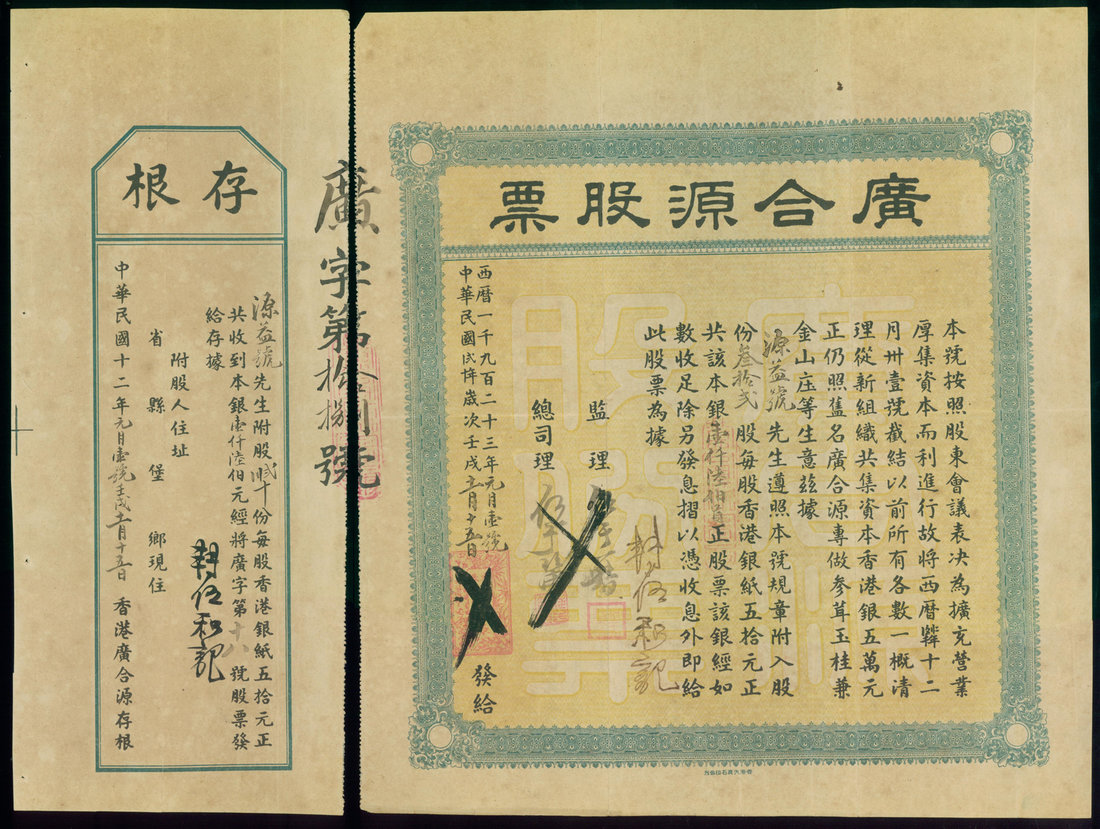 廣合源股票
本號按照股東會議表决為擴充營業
厚集資本而利進行故將西曆 十二
月卅壹號截結以前所有各數一概清
理從新組織共集資本香港銀五萬元
正仍照舊名廣合源專做參茸玉桂兼
金山庄等生意茲據
源益號先生遵照本號規章附入股
份叁拾弍股每股香港銀紙五拾元正
共該本銀壹仟陸佰員正股票該銀經如
數收足除另發息摺以憑收息外即給
此股票為據
監理
總司理
西曆一千九百二十三年元月壹號
中華民國 歲次壬戌 月十五日
發給
廣字第拾捌號
存根
源益號先生附股 份每股香港銀紙五拾元正
共收到本銀壹仟陸佰元經將廣字第十八號股票發
給存據
附股人住址
省 縣 堡 鄉現住
中華民國十二年元月壹號壬戌 月十五日 香港廣合源存根